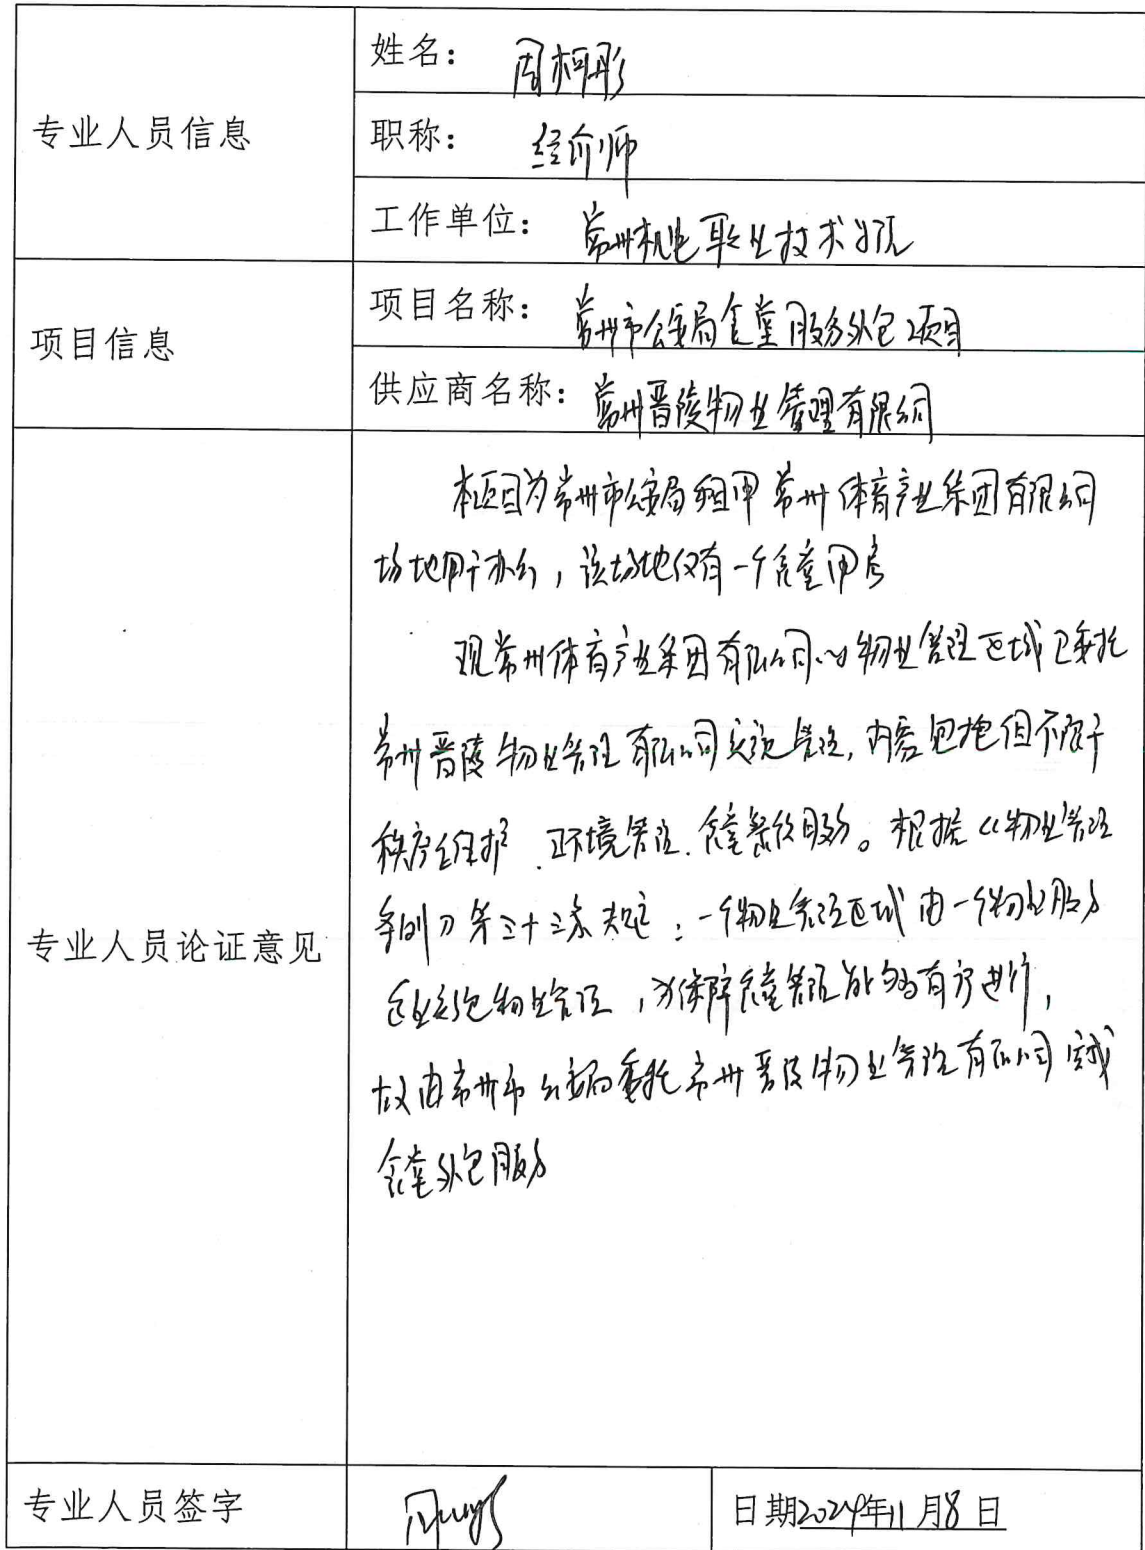 专业人员信息
姓名： 周柯彤
职称： 经济师
工作单位： 常州机电职业技术学院
项目信息
项目名称： 常州市公安局食堂服务外包项目
供应商名称： 常州晋陵物业管理有限公司
专业人员论证意见
本项目为常州市公安局租用常州体育产业集团有限公司
场地用于办公，该场地仅有一个食堂用房
现常州体育产业集团有限公司的物业管理区域已委托
常州晋陵物业管理有限公司实施管理，内容包括但不限于
秩序维护、环境管理、食堂餐饮服务。根据《物业管理
条例》第三十三条规定：一个物业管理区域由一个物业服务
企业实施物业管理，为保障食堂管理能够有序进行，
故由常州市公安局委托常州晋陵物业管理有限公司完成
食堂外包服务
专业人员签字
日期2024年11月8日